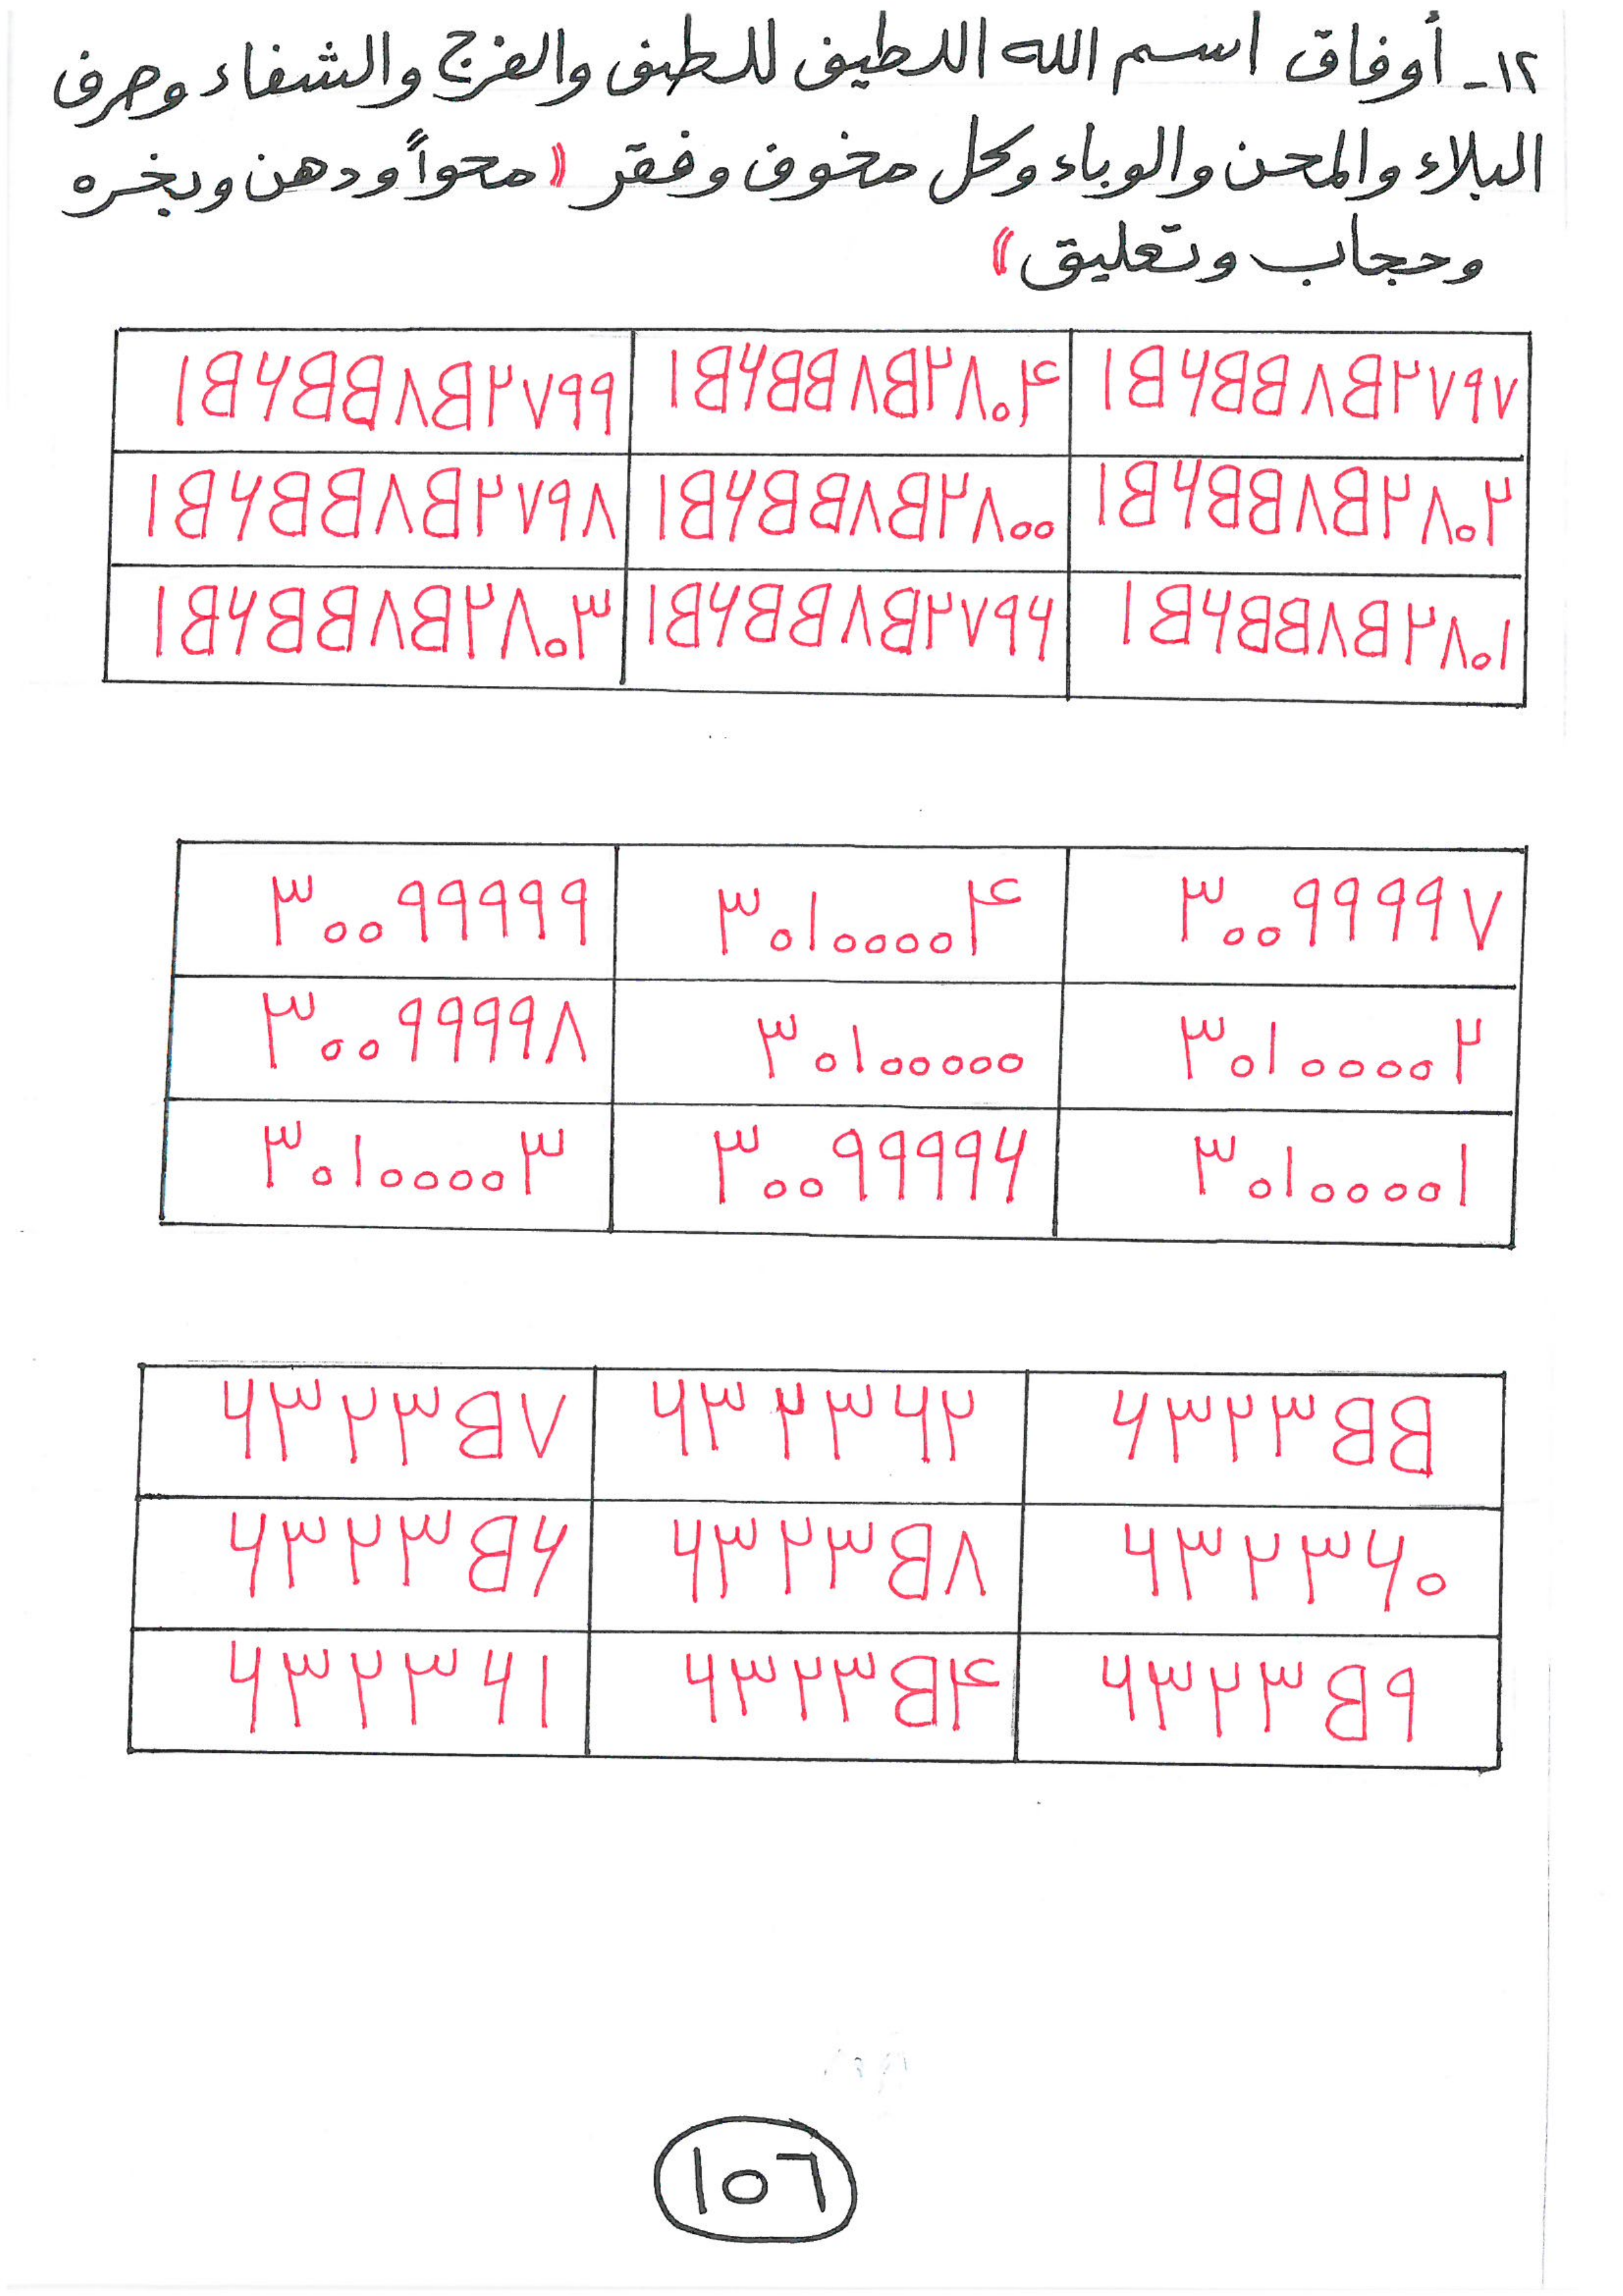 ١٢ـ أوفاق اسم الله اللطيف للطف والفرج والشفاء وصرف
البلاء والمحن والوباء وكل مخوف وفقر (( محواً ودهن وبخره
وحجاب وتعليق ))
١٥٦٥٥٨٥٢٧٩٧ ١٥٦٥٥٨٥٢٨٠٤ ١٥٦٥٥٨٥٢٧٩٩
١٥٦٥٥٨٥٢٨٠٢ ١٥٦٥٥٨٥٢٨٠٠ ١٥٦٥٥٨٥٢٧٩٨
١٥٦٥٥٨٥٢٨٠١ ١٥٦٥٥٨٥٢٧٩٦ ١٥٦٥٥٨٥٢٨٠٣
٣٠٠٩٩٩٩٧ ٣٠١٠٠٠٠٤ ٣٠٠٩٩٩٩٩
٣٠١٠٠٠٠٢ ٣٠١٠٠٠٠٠ ٣٠٠٩٩٩٩٨
٣٠١٠٠٠٠١ ٣٠٠٩٩٩٩٦ ٣٠١٠٠٠٠٣
٦٣٢٣٥٥ ٦٣٢٣٦٢ ٦٣٢٣٥٧
٦٣٢٣٦٠ ٦٣٢٣٥٨ ٦٣٢٣٥٦
٦٣٢٣٥٩ ٦٣٢٣٥٤ ٦٣٢٣٦١
١٥٦